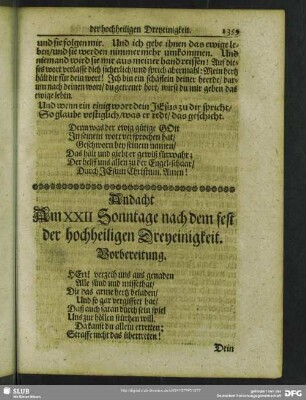 der hochheiligen Dreyeinigkeit. 2359
und sie folgen mir. Und ich gebe ihnen das ewige le-
ben/ und sie werden nimmermehr umkommen. Und
niemand wird sie mir aus meiner hand reissen! Auf die-
sis wort verlasse dich sicherlich/ und sprich abermahl: Mein hertz
hält dir für dein wort! Ich bin ein schäflein deiner heerde/ dar-
um nach deinem wort/ du getreuer hort/ wirst du mir geben das
ewige leben.
Und wenn ein einig wort dein JEsus zu dir spricht/
So glaube vestiglich/ was er redt/ das geschicht.
Denn was der ewig gütige GOtt
In seinem wort versprochen hat/
Geschworn bey seinem namen/
Das hält und giebt er gewiß fürwahr;
Der helff uns allen zu der Engel-schaar/
Durch JEsum Christum. Amen!
Andacht
Am XXII Sonntage nach dem fest
der hochheiligen Dreyeinigkeit.
Vorbereitung.
HErr verzeih uns aus genaden
Alle sünd und missethat/
Die das arme hertz beladen/
Und so gar vergifftet hat/
Daß auch satan durch sein spiel
Uns zur höllen stürtzen will.
Da kanst du allein erretten;
Straffe nicht das übertreten!
Dein
SLUB